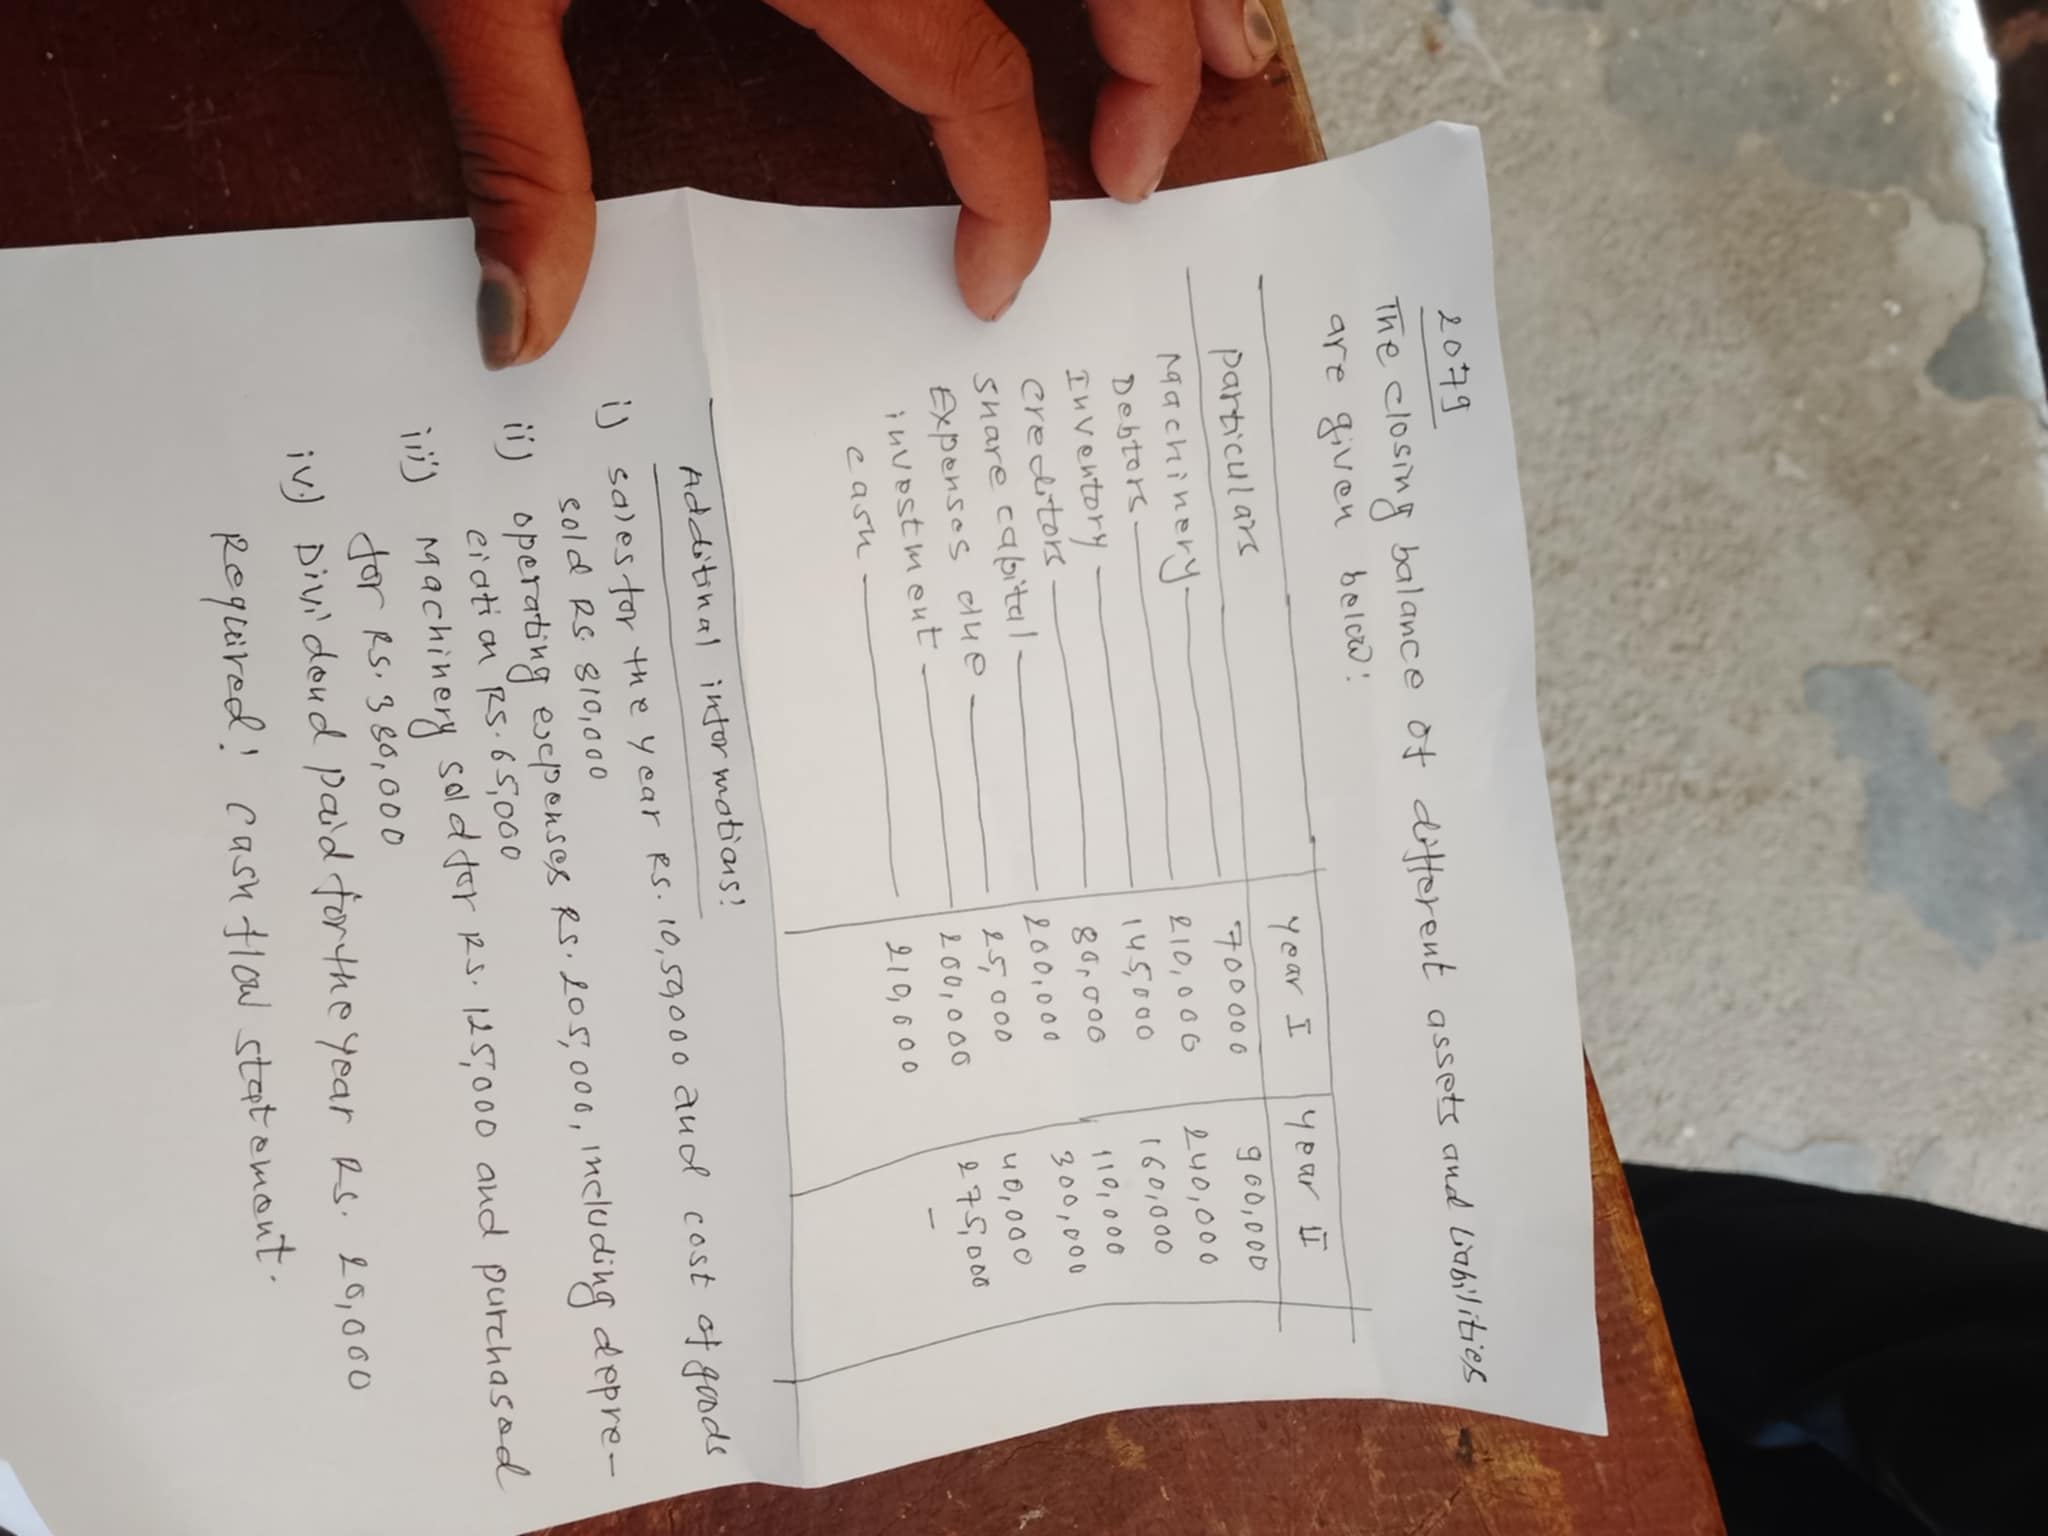 2079
The closing balance of different assets and Liabilities
are given below:
Particulars Year I Year II
Machinery 700000 900,000
Debtors 210,000 240,000
Inventory 145,000 160,000
creditors 80,000 110,000
Share capital 200,000 300,000
Expenses due 25,000 40,000
investment 200,000 275,000
cash 210,000 -
Additinal informations:
i) sales for the year Rs. 10,50,000 and cost of goods
sold Rs. 810,000
ii) operating expenses Rs. 205,000, including depre-
ciation Rs. 65,000
iii) Machinery sold for Rs. 125,000 and purchased
for Rs. 380,000
iv.) Dividend paid for the year Rs. 20,000
Required: cash flow statement.